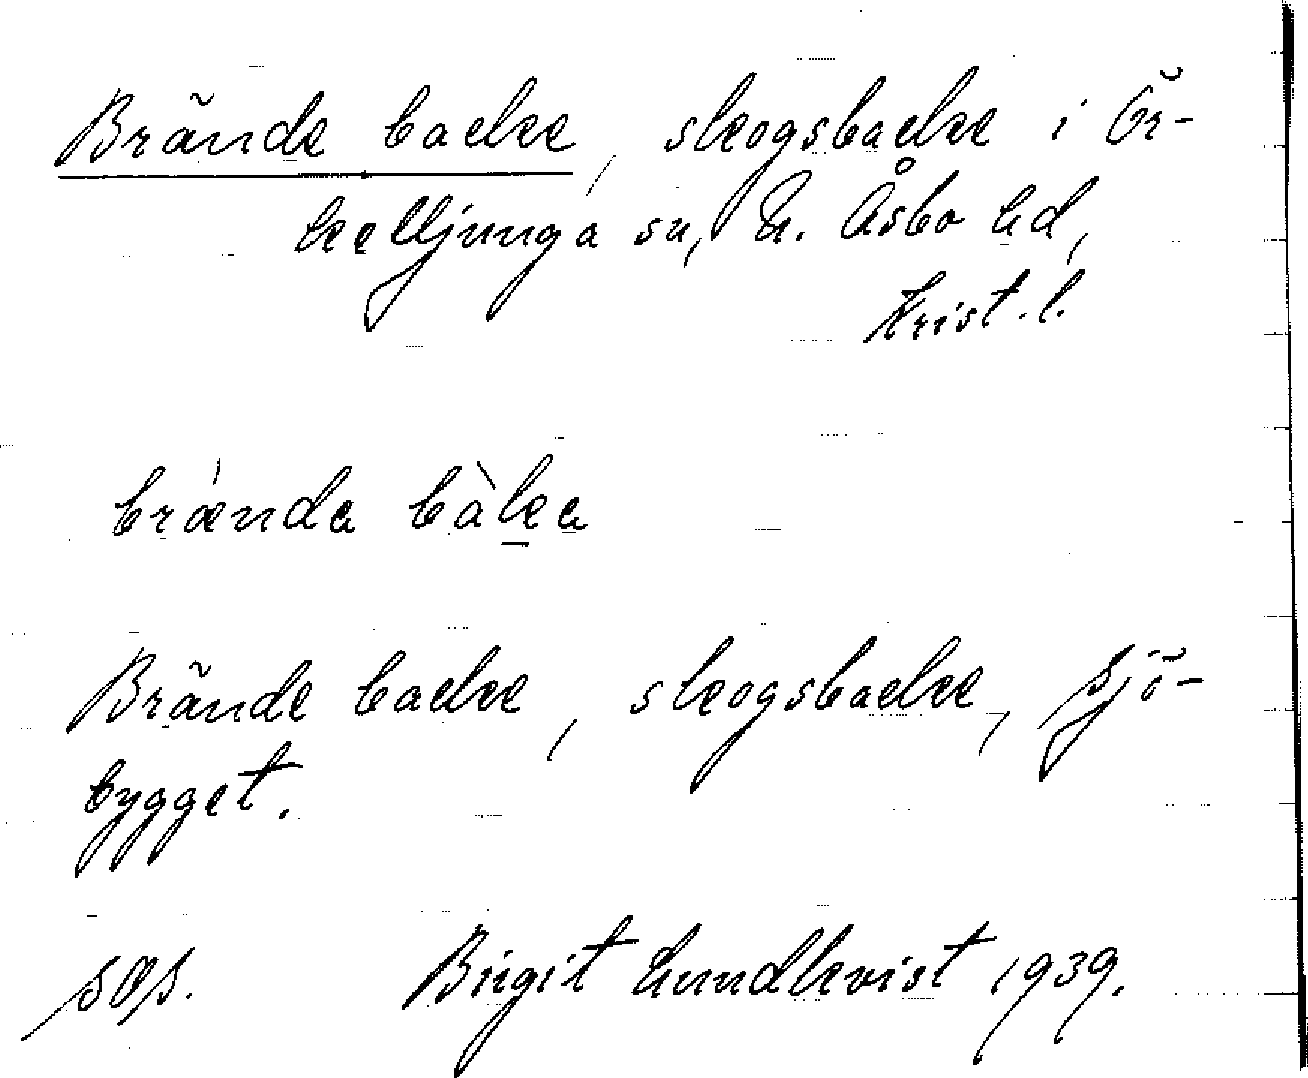 Brände backe, skogsbacke i Ör-
kelljunga sn, N. Åsbo hd,
Krist. l.
brǽnda bàka
Brände backe, skogsbacke, Sjö-
bygget.
SOS. Birgit Lundkvist 1939.